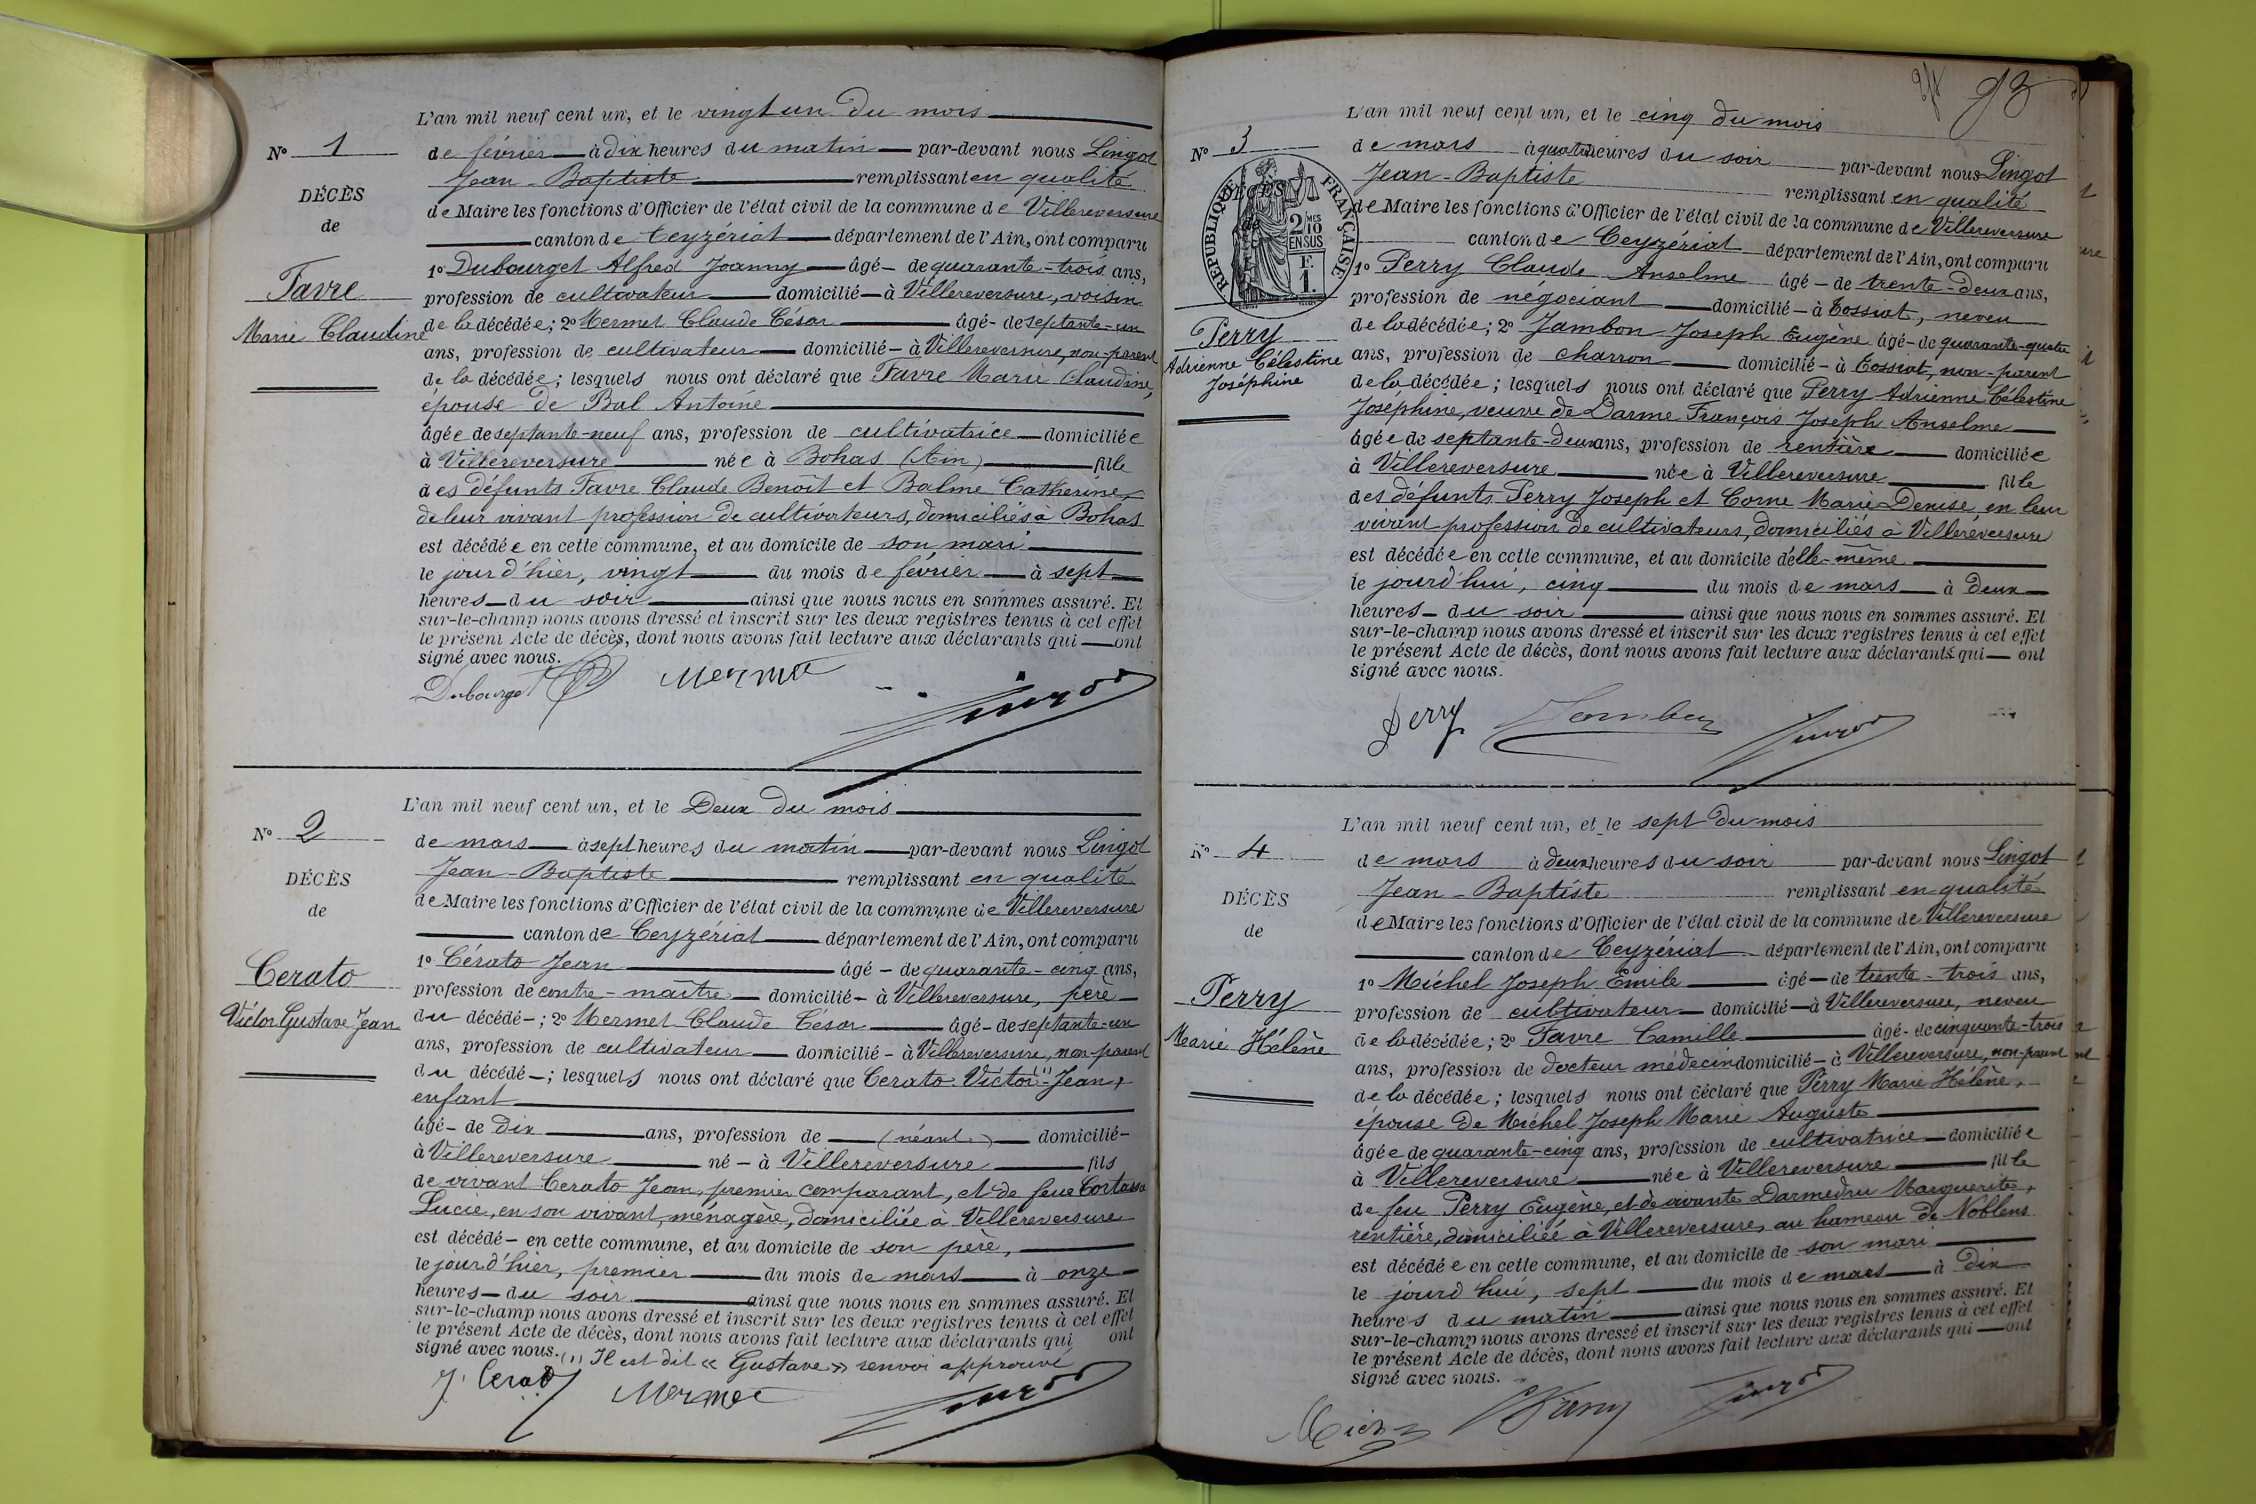 L'an mil neuf cent un, et le vingt un du mois
N° 1
de février à dix heures du matin par-devant nous Lingot
Jean-Baptiste remplissant en qualité
DÉCÈS
de Maire les fonctions d'Officier de l'état civil de la commune de Villereversure
de
canton de Ceyzériat département de l'Ain, ont comparu
1° Dubourget Alfred Joanny âgé de quarante-trois ans,
Favre
profession de cultivateur domicilié à Villereversure, voisin
Marie Claudine
de la décédée; 2° Mermet Claude César âgé de septante-un
ans, profession de cultivateur domicilié à Villereversure, non-parent
de la décédée; lesquels nous ont déclaré que Favre Marie Claudine,
épouse de Bal Antoine
âgée de septante-neuf ans, profession de cultivatrice domiciliée
à Villereversure née à Bohas (Ain) fille
des défunts Favre Claude Benoît et Balme Catherine,
de leur vivant profession de cultivateurs, domiciliés à Bohas
est décédée en cette commune, et au domicile de son mari
le jour d'hier, vingt du mois de février à sept
heures du soir ainsi que nous nous en sommes assuré. Et
sur-le-champ nous avons dressé et inscrit sur les deux registres tenus à cet effet
le présent Acte de décès, dont nous avons fait lecture aux déclarants qui ont
signé avec nous.
Dubourget Mermet Lingot
L'an mil neuf cent un, et le Deux du mois
N° 2
de mars à sept heures du matin par-devant nous Lingot
Jean-Baptiste remplissant en qualité
DÉCÈS
de Maire les fonctions d'Officier de l'état civil de la commune de Villereversure
de
canton de Ceyzériat département de l'Ain, ont comparu
1° Cérato Jean âgé de quarante-cinq ans,
Cerato
profession de contre-maître domicilié à Villereversure, père
Victor Gustave Jean
du décédé; 2° Mermet Claude César âgé de septante-un
ans, profession de cultivateur domicilié à Villereversure, non-parent
du décédé; lesquels nous ont déclaré que Cerato Victor (1) Jean,
enfant
âgé de dix ans, profession de (néant) domicilié
à Villereversure né à Villereversure fils
de vivant Cerato Jean, premier comparant, et de feue Cortassa
Lucie, en son vivant, ménagère, domiciliée à Villereversure
est décédé en cette commune, et au domicile de son père,
le jour d'hier, premier du mois de mars à onze
heures du soir ainsi que nous nous en sommes assuré. Et
sur-le-champ nous avons dressé et inscrit sur les deux registres tenus à cet effet
le présent Acte de décès, dont nous avons fait lecture aux déclarants qui ont
signé avec nous. (1) Il est dit « Gustave » renvoi approuvé
J. Cerato Mermet Lingot
93
L'an mil neuf cent un, et le cinq du mois
N° 3
de mars à quatre heures du soir par-devant nous Lingot
Jean-Baptiste remplissant en qualité
DÉCÈS
RÉPUBLIQUE FRANÇAISE
2/10 MES
EN SUS
F.
1.
de Maire les fonctions d'Officier de l'état civil de la commune de Villereversure
canton de Ceyzériat département de l'Ain, ont comparu
1° Perry Claude Anselme âgé de trente-deux ans,
profession de négociant domicilié à Tossiat, neveu
Perry
Adrienne Célestine
Joséphine
de la décédée; 2° Jambon Joseph Eugène âgé de quarante-quatre
ans, profession de charron domicilié à Tossiat, non-parent
de la décédée; lesquels nous ont déclaré que Perry Adrienne Célestine
Joséphine, veuve de Darme François Joseph Anselme
âgée de septante-deux ans, profession de rentière domiciliée
à Villereversure née à Villereversure fille
des défunts Perry Joseph et Corne Marie Denise, en leur
vivant profession de cultivateurs, domiciliés à Villereversure
est décédée en cette commune, et au domicile d'elle-même
le jourd'hui, cinq du mois de mars à deux
heures du soir ainsi que nous nous en sommes assuré. Et
sur-le-champ nous avons dressé et inscrit sur les deux registres tenus à cet effet
le présent Acte de décès, dont nous avons fait lecture aux déclarants qui ont
signé avec nous.
Perry Jambon Lingot
L'an mil neuf cent un, et le sept du mois
N° 4
de mars à deux heures du soir par-devant nous Lingot
Jean-Baptiste remplissant en qualité
DÉCÈS
de Maire les fonctions d'Officier de l'état civil de la commune de Villereversure
de
canton de Ceyzériat département de l'Ain, ont comparu
1° Michel Joseph Emile âgé de trente-trois ans,
Perry
profession de cultivateur domicilié à Villereversure, neveu
Marie Hélène
de la décédée; 2° Favre Camille âgé de cinquante-trois
ans, profession de docteur médecin domicilié à Villereversure, non-parent
de la décédée; lesquels nous ont déclaré que Perry Marie Hélène,
épouse de Michel Joseph Marie Auguste
âgée de quarante-cinq ans, profession de cultivatrice domiciliée
à Villereversure née à Villereversure fille
de feu Perry Eugène, et de vivante Darmedru Marguerite,
rentière, domiciliée à Villereversure, au hameau de Noblens
est décédée en cette commune, et au domicile de son mari
le jourd'hui, sept du mois de mars à dix
heures du matin ainsi que nous nous en sommes assuré. Et
sur-le-champ nous avons dressé et inscrit sur les deux registres tenus à cet effet
le présent Acte de décès, dont nous avons fait lecture aux déclarants qui ont
signé avec nous.
Michel Favre Lingot